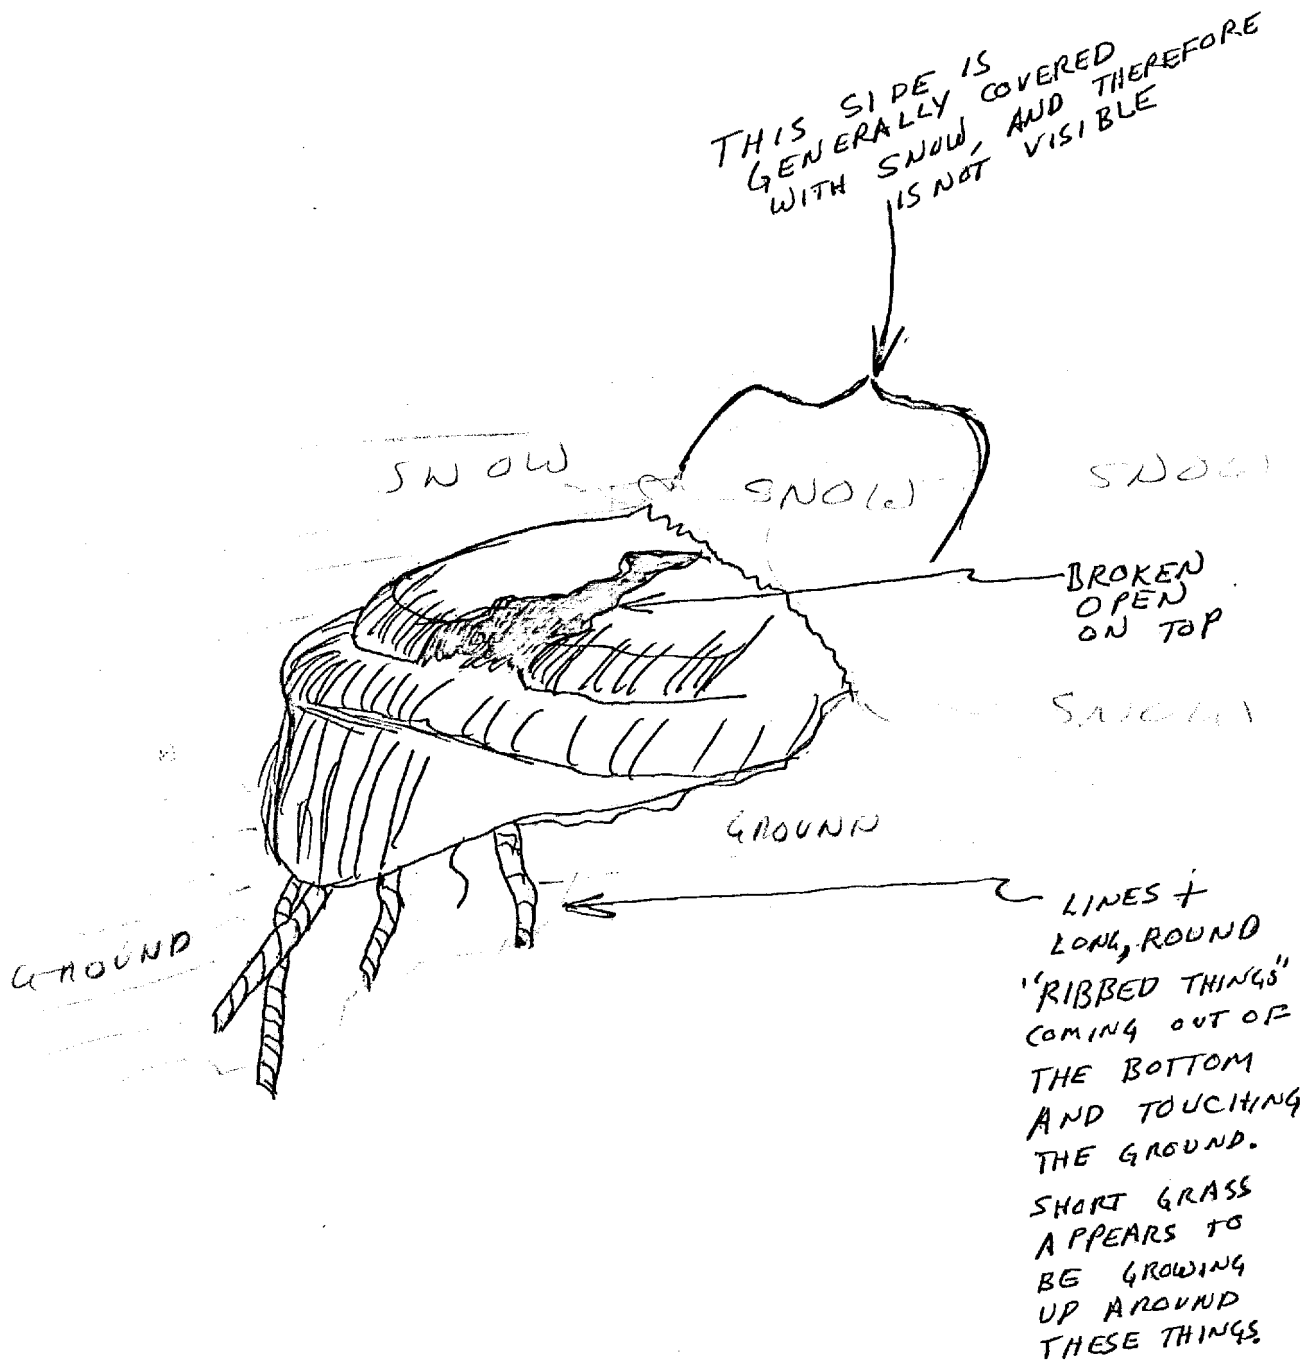 THIS SIDE IS
GENERALLY COVERED
WITH SNOW, AND THEREFORE
IS NOT VISIBLE
SNOW
SNOW
SNOW
BROKEN
OPEN
ON TOP
SNOW
GROUND
GROUND
LINES +
LONG, ROUND
"RIBBED THINGS"
COMING OUT OF
THE BOTTOM
AND TOUCHING
THE GROUND.
SHORT GRASS
APPEARS TO
BE GROWING
UP AROUND
THESE THINGS.